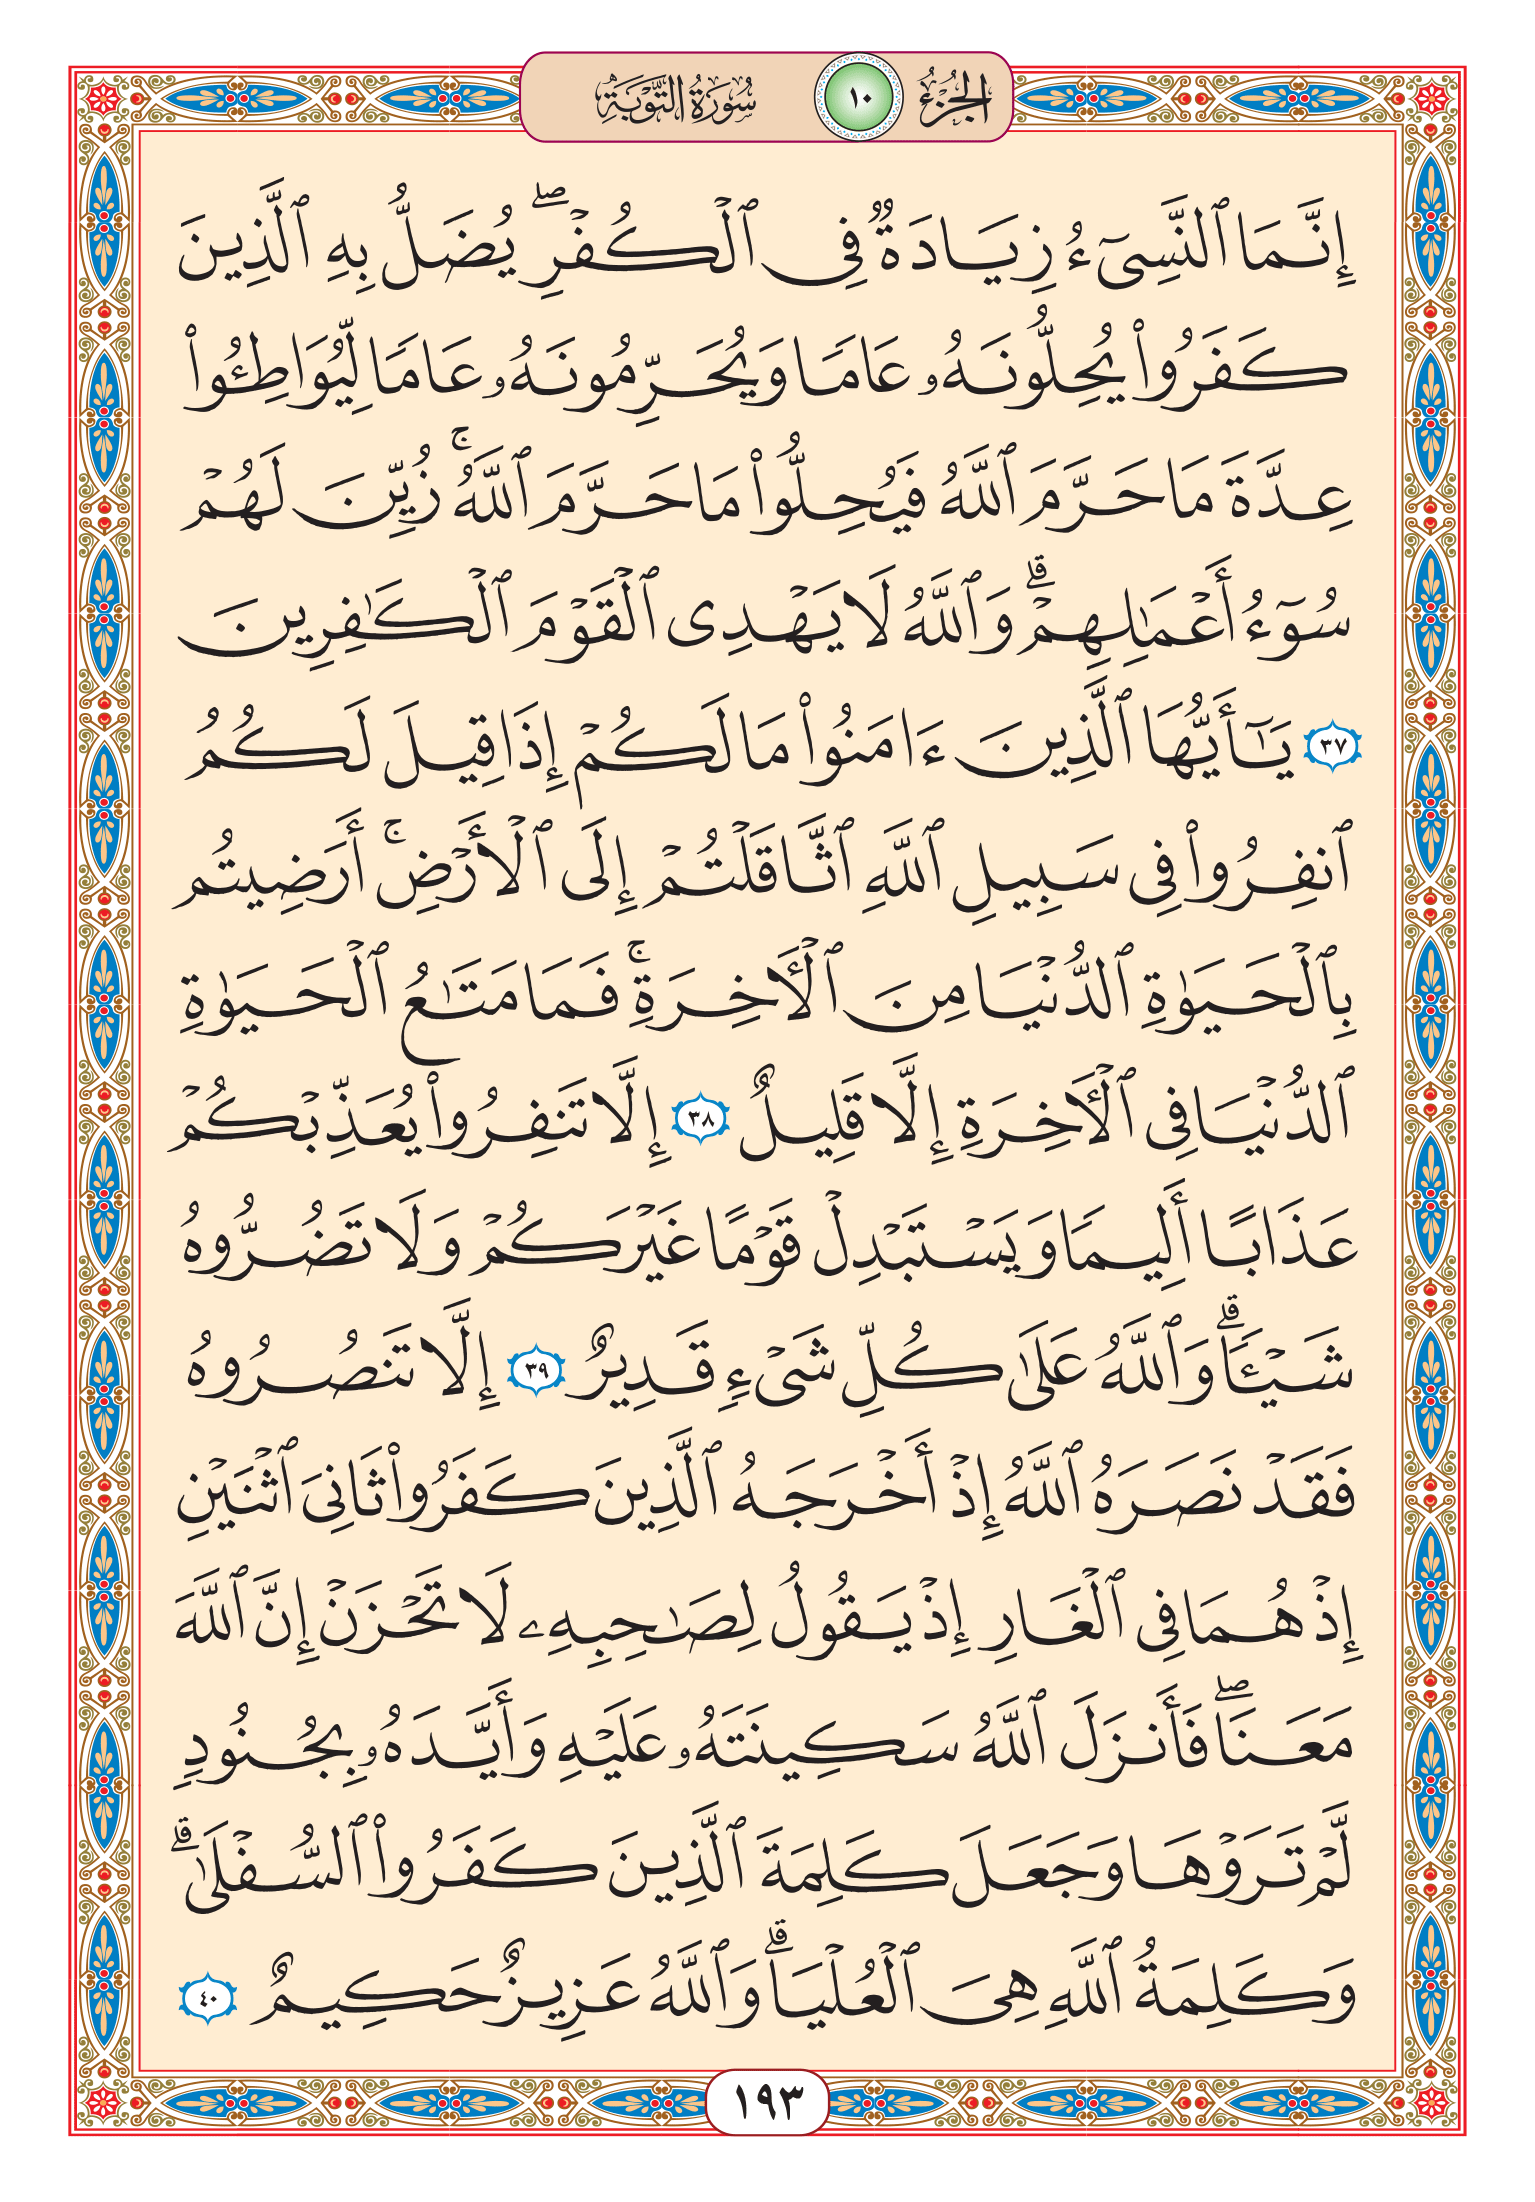 الجزء ١٠ سورة التوبة
إِنَّمَا ٱلنَّسِىٓءُ زِيَادَةٌ فِى ٱلْكُفْرِ ۖ يُضَلُّ بِهِ ٱلَّذِينَ
كَفَرُوا۟ يُحِلُّونَهُۥ عَامًا وَيُحَرِّمُونَهُۥ عَامًا لِّيُوَاطِـُٔوا۟
عِدَّةَ مَا حَرَّمَ ٱللَّهُ فَيُحِلُّوا۟ مَا حَرَّمَ ٱللَّهُ ۚ زُيِّنَ لَهُمْ
سُوٓءُ أَعْمَـٰلِهِمْ ۗ وَٱللَّهُ لَا يَهْدِى ٱلْقَوْمَ ٱلْكَـٰفِرِينَ
٣٧ يَـٰٓأَيُّهَا ٱلَّذِينَ ءَامَنُوا۟ مَا لَكُمْ إِذَا قِيلَ لَكُمُ
ٱنفِرُوا۟ فِى سَبِيلِ ٱللَّهِ ٱثَّاقَلْتُمْ إِلَى ٱلْأَرْضِ ۚ أَرَضِيتُم
بِٱلْحَيَوٰةِ ٱلدُّنْيَا مِنَ ٱلْـَٔاخِرَةِ ۚ فَمَا مَتَـٰعُ ٱلْحَيَوٰةِ
ٱلدُّنْيَا فِى ٱلْـَٔاخِرَةِ إِلَّا قَلِيلٌ ٣٨ إِلَّا تَنفِرُوا۟ يُعَذِّبْكُمْ
عَذَابًا أَلِيمًا وَيَسْتَبْدِلْ قَوْمًا غَيْرَكُمْ وَلَا تَضُرُّوهُ
شَيْـًٔا ۗ وَٱللَّهُ عَلَىٰ كُلِّ شَىْءٍ قَدِيرٌ ٣٩ إِلَّا تَنصُرُوهُ
فَقَدْ نَصَرَهُ ٱللَّهُ إِذْ أَخْرَجَهُ ٱلَّذِينَ كَفَرُوا۟ ثَانِىَ ٱثْنَيْنِ
إِذْ هُمَا فِى ٱلْغَارِ إِذْ يَقُولُ لِصَـٰحِبِهِۦ لَا تَحْزَنْ إِنَّ ٱللَّهَ
مَعَنَا ۖ فَأَنزَلَ ٱللَّهُ سَكِينَتَهُۥ عَلَيْهِ وَأَيَّدَهُۥ بِجُنُودٍ
لَّمْ تَرَوْهَا وَجَعَلَ كَلِمَةَ ٱلَّذِينَ كَفَرُوا۟ ٱلسُّفْلَىٰ ۗ
وَكَلِمَةُ ٱللَّهِ هِىَ ٱلْعُلْيَا ۗ وَٱللَّهُ عَزِيزٌ حَكِيمٌ ٤٠
١٩٣